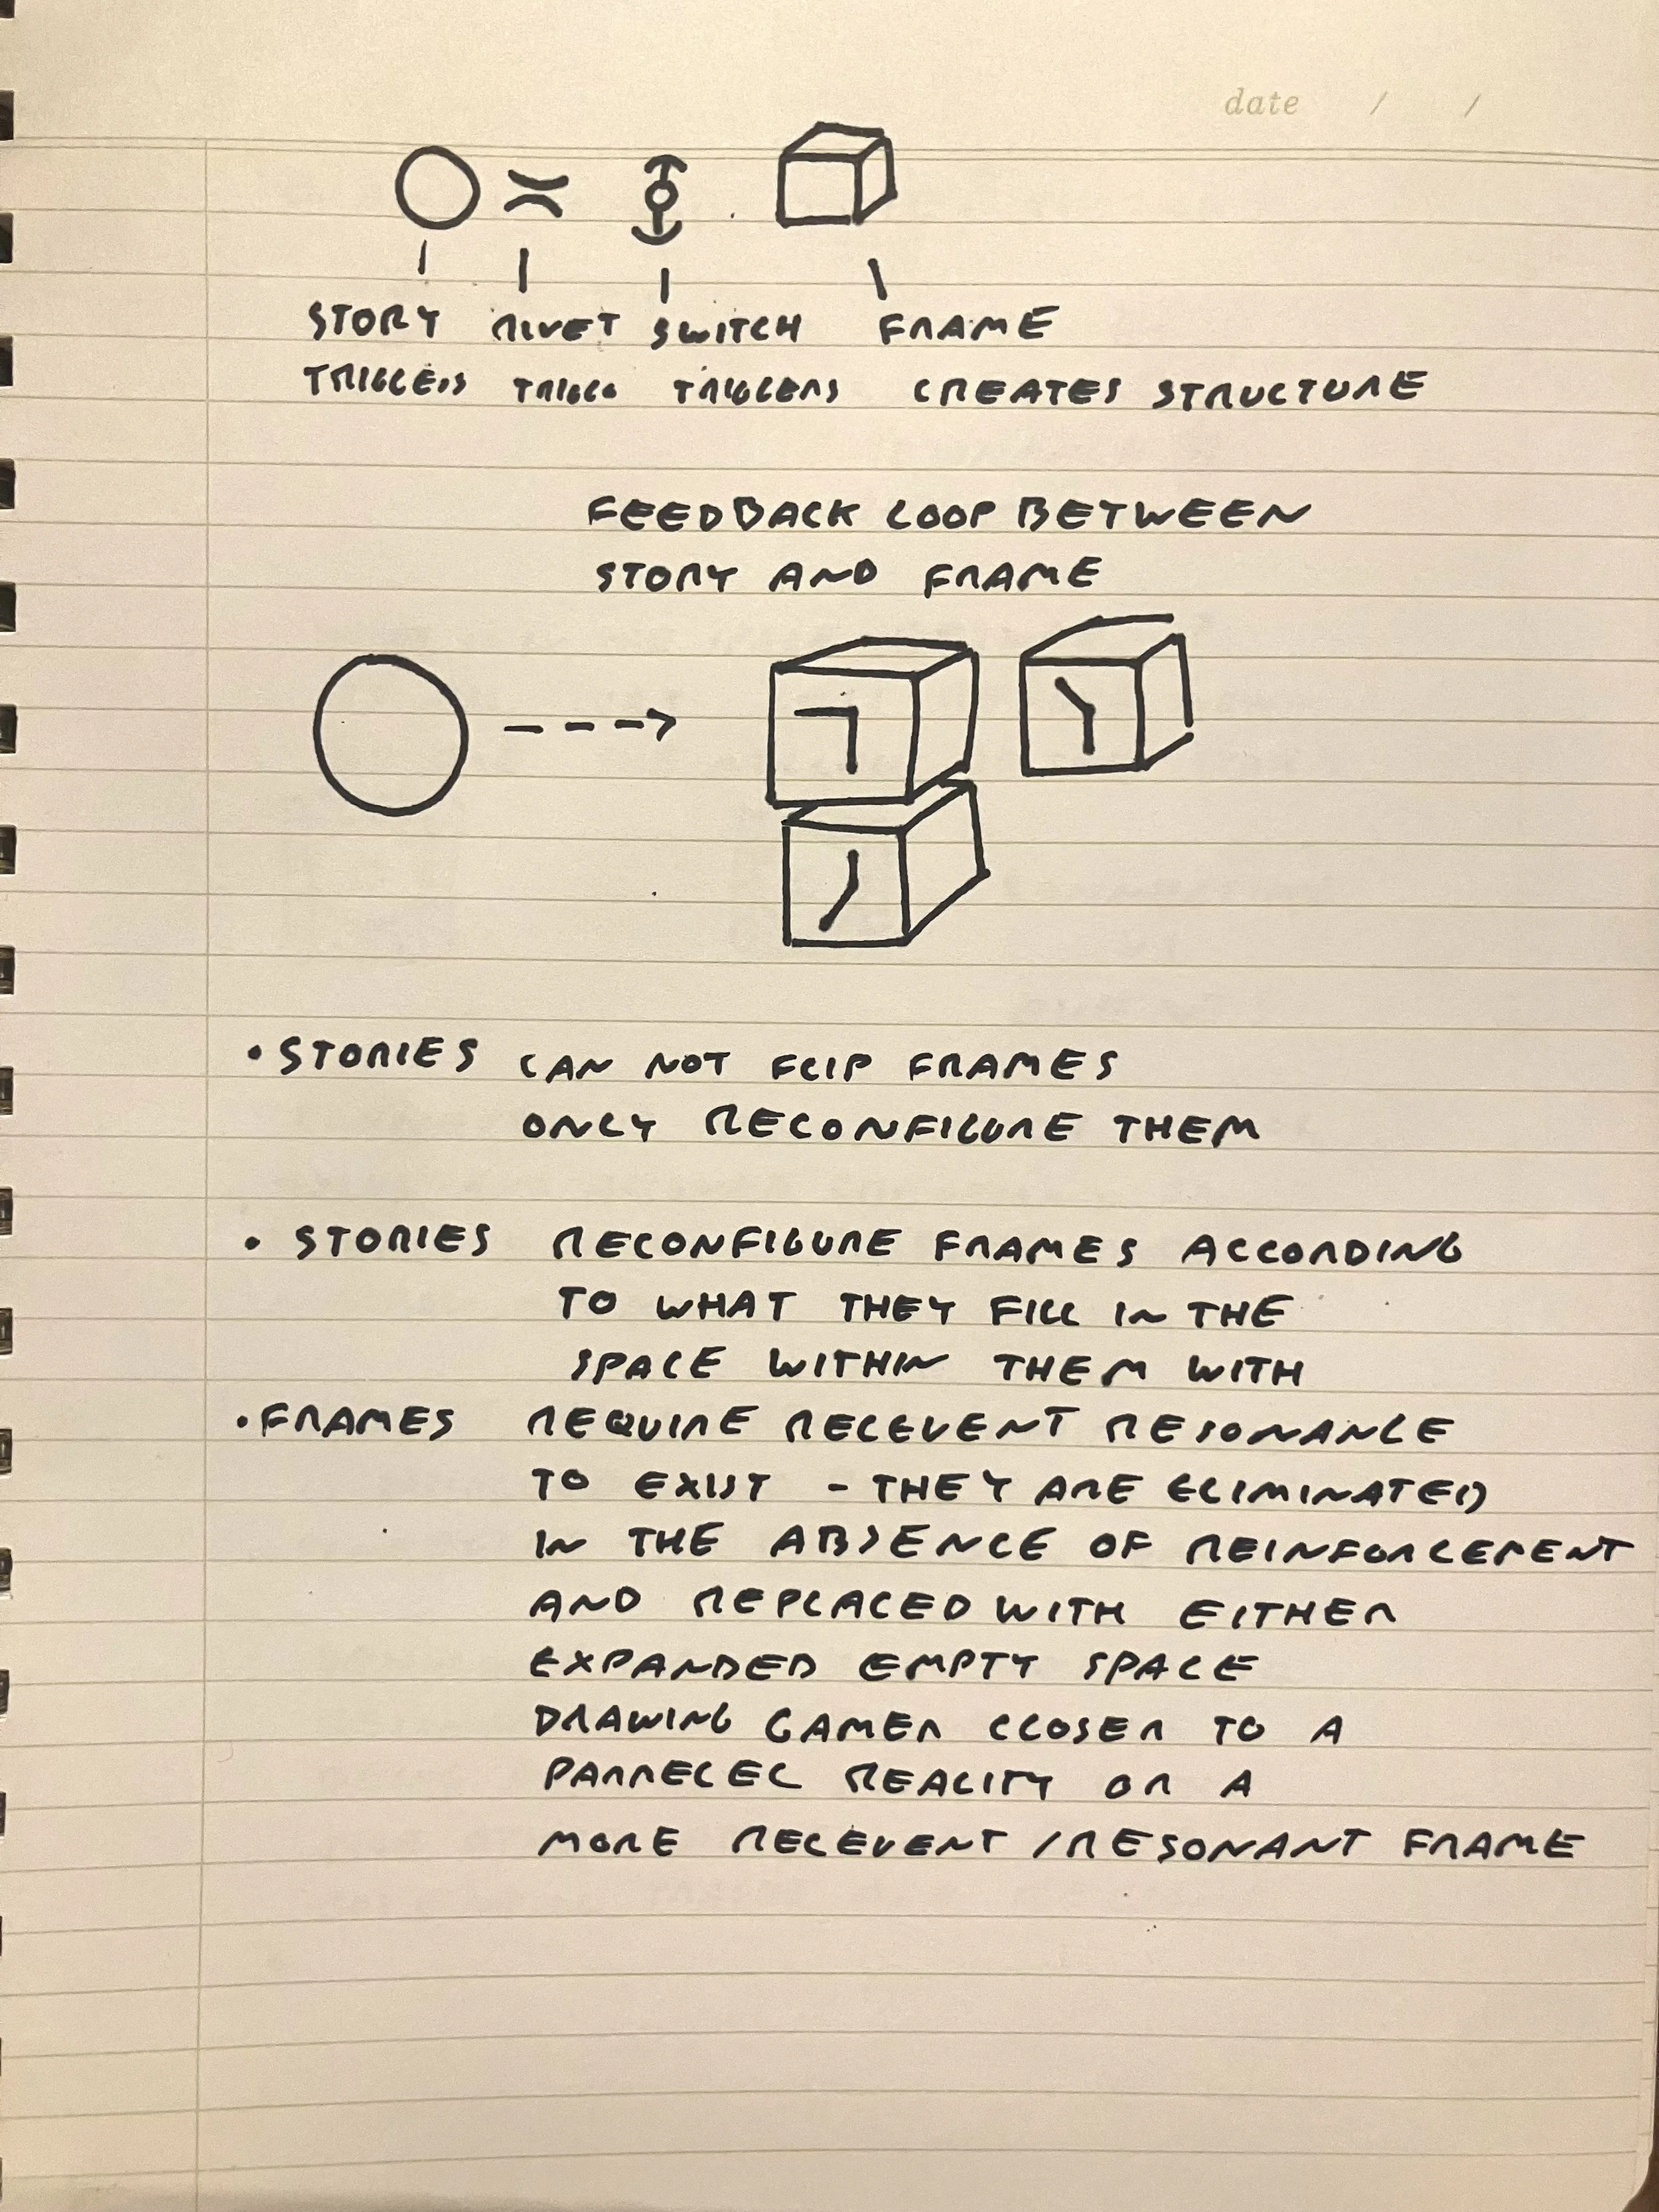 date / /
STORY RIVET SWITCH FRAME
TRIGGERS TRIGGO TRIGGERS CREATES STRUCTURE
FEEDBACK LOOP BETWEEN
STORY AND FRAME
• STORIES CAN NOT FLIP FRAMES
ONLY RECONFIGURE THEM
• STORIES RECONFIGURE FRAMES ACCORDING
TO WHAT THEY FILL IN THE
SPACE WITHIN THEM WITH
• FRAMES REQUIRE RELEVENT RESONANCE
TO EXIST - THEY ARE ELIMINATED
IN THE ABSENCE OF REINFORCEMENT
AND REPLACED WITH EITHER
EXPANDED EMPTY SPACE
DRAWING GAMER CLOSER TO A
PARRELEL REALITY OR A
MORE RELEVENT / RESONANT FRAME